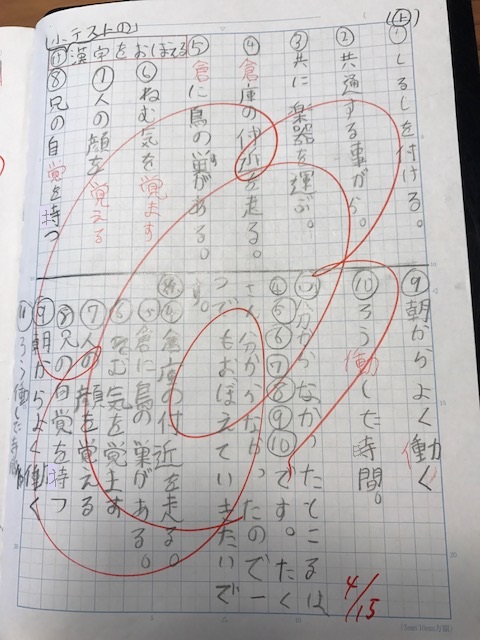 小テストの
漢字をおぼえる
(上)
① しるしを付ける。
② 共通する事がら。
③ 共に楽器を運ぶ。
④ 倉庫の付近を走る。
⑤ 倉に鳥の巣がある。
⑥ ねむ気を覚ます
⑦ 人の顔を覚える
⑧ 兄の自覚を持つ
⑨ 朝からよく働く
⑩ ろう働した時間。
分からなかったところは
④⑤⑥⑦⑧⑨⑩です。たく
さん分からなかったので一
つでもおぼえていきたいで
す。
④ 倉庫の付近を走る。
⑤ 倉に鳥の巣がある。
⑥ ねむ気を覚ます
⑦ 人の顔を覚える
⑧ 兄の自覚を持つ
⑨ 朝からよく働く
ろう働した時間
4/15